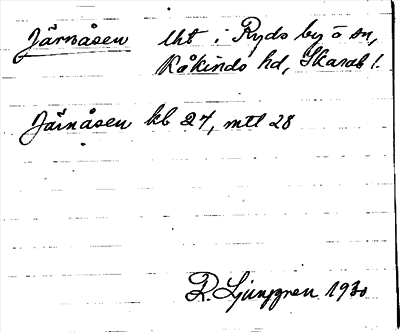 Järnåsen lht i Ryds by o sn,
Kåkinds hd, Skarab l.
Järnåsen kb 27, mtl 28
R. Ljunggren 1930